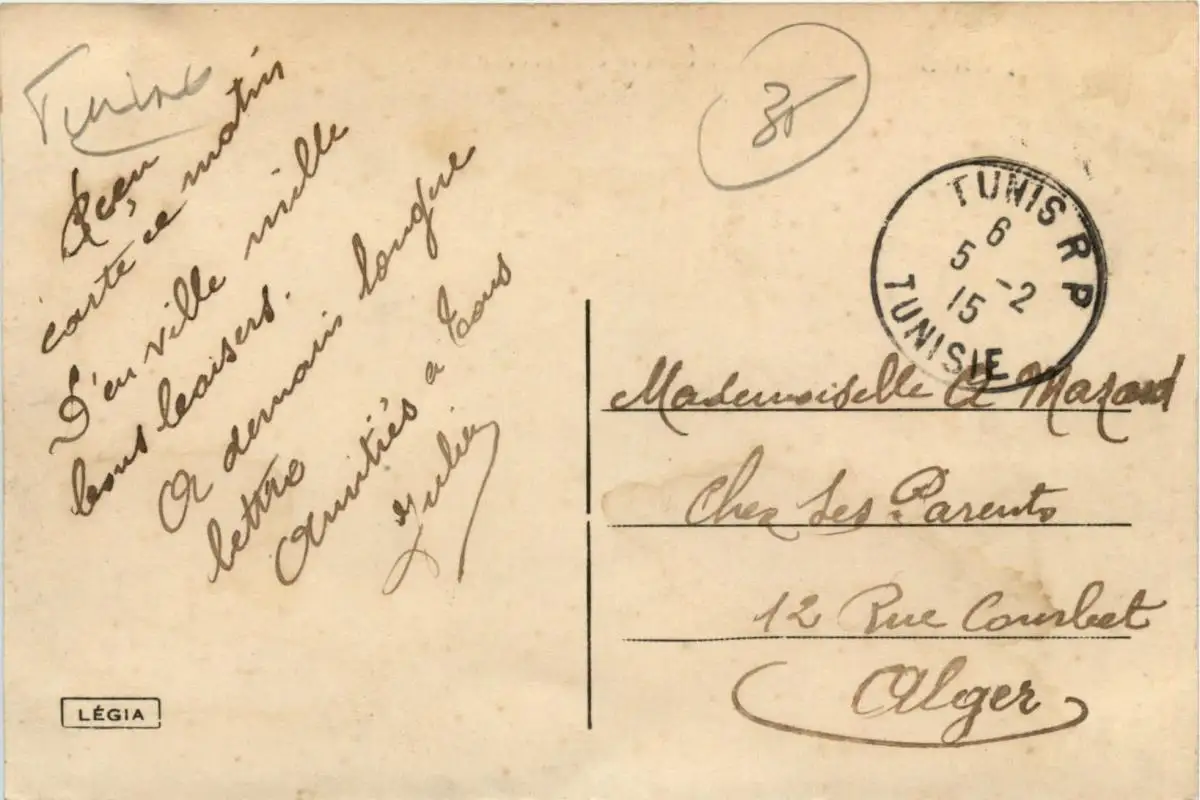 Tunine
Reçu
carte ce matin
D'en ville mille
bons baisers.
A demain longue
lettre
Amitiés a Tous
Julien
LÉGIA
TUNIS R P
6
5 -2
15
TUNISIE
Mademoiselle A Mazard
Chez Ses Parents
12 Rue Courbet
Alger